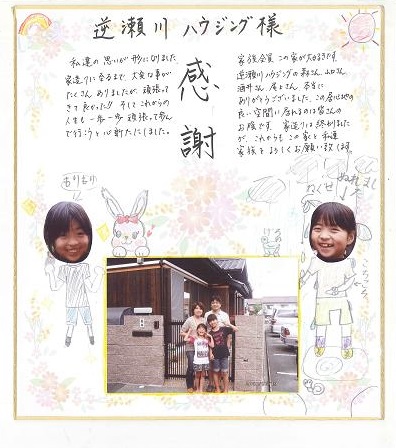 逆瀬川 ハウジング様
感謝
私達の思いが形になりました。
家造りになるまで、大変な事が
たくさんありましたが、頑張って
きて良かった!! そしてこれからの
人生も一歩一歩頑張って歩ん
で行こうと心新たにしました。
家族全員 この家が大好きです。
逆瀬川ハウジングの森さん、山口さん
酒井さん、尾上さん 本当に
ありがとうございました。この居心地の
良い空間に居れるのは皆さんの
お陰です。家造りは終わりました
が、これからも この家と 私達
家族を よろしくお願い致します。
もりもり
ねぐせ